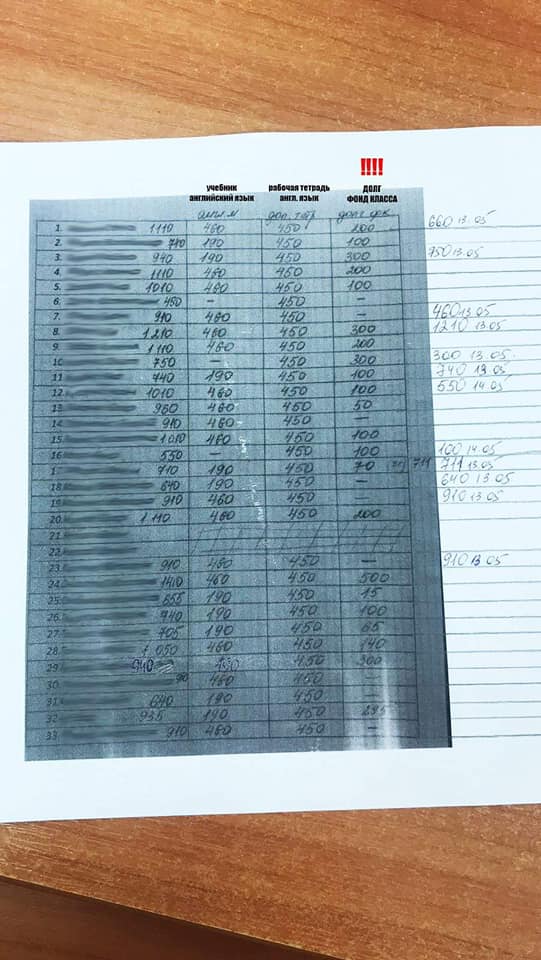 !!!!
учебник рабочая тетрадь ДОЛГ
английский язык англ. язык ФОНД КЛАССА
англ.м доп. тетр долг фк.
1. 1110 460 450 200 660 13.05
2. 740 190 450 100
3. 940 190 450 300 750 13.05
4. 1110 460 450 200
5. 1010 460 450 100
6. 450 – 450 –
7. 910 460 450 – 460 13.05
8. 1210 460 450 300 1210 13.05
9. 1110 460 450 200
10 750 – 450 300 300 13.05
11 740 190 450 100 740 13.05
12. 1010 460 450 100 550 14.05
13 960 460 450 50
14 910 460 450 –
15 1010 460 450 100
16 550 – 450 100 100 14.05
17 710 190 450 70 711 711 13.05
18 640 190 450 – 640 13.05
19 910 460 450 – 910 13.05
20 1110 460 450 200
21
22
23 910 460 450 – 910 13.05
24 1410 460 450 500
25 655 190 450 15
26 740 190 450 100
27 705 190 450 65
28 1050 460 450 140
29 940 190 450 300
30 460 450 –
31 640 190 450 –
32 935 190 450 295
33 910 460 450 –